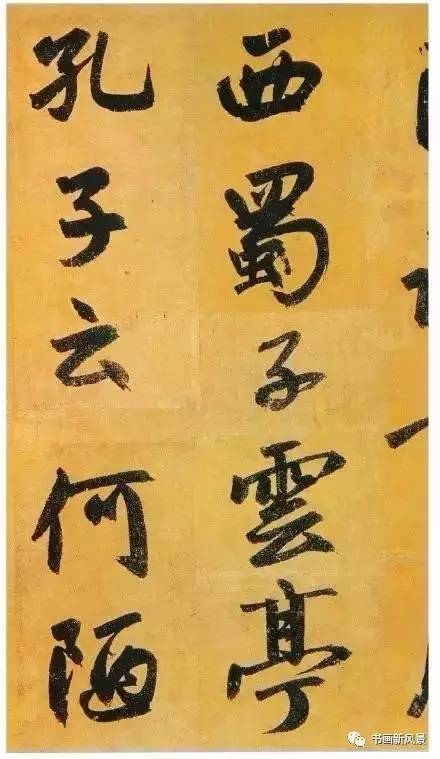 西蜀子雲亭
孔子云何陋
书画新风景